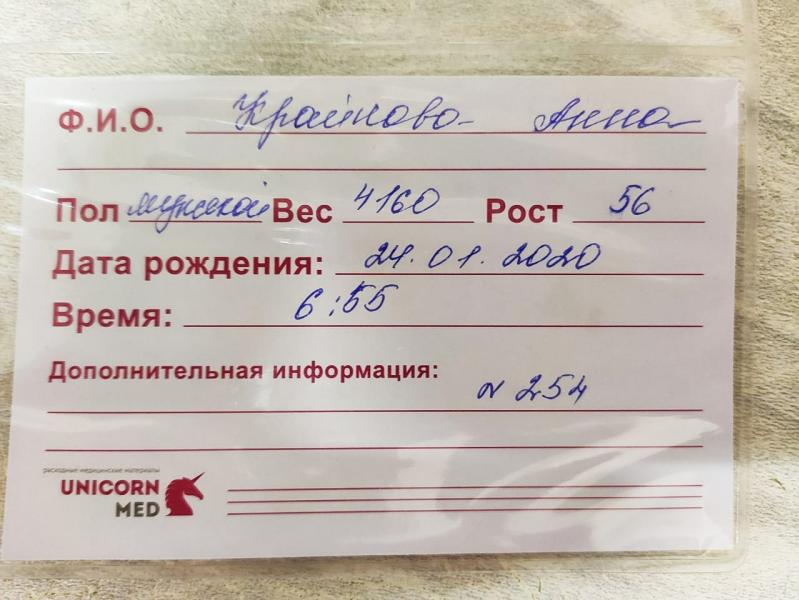 Ф.И.О. Крайнова Анна
Пол мужской Вес 4160 Рост 56
Дата рождения: 24.01.2020
Время: 6:55
Дополнительная информация:
N 254
расходные медицинские материалы
UNICORN
MED